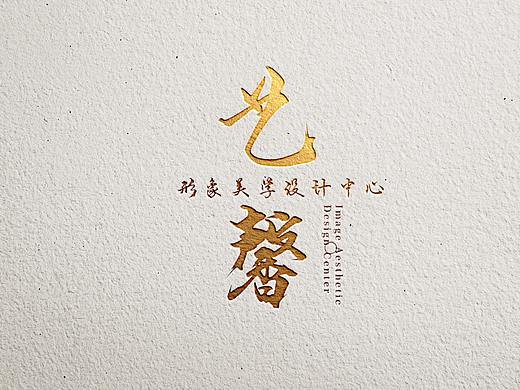 艺
形象美学设计中心
馨
Image Aesthetic
Design Center